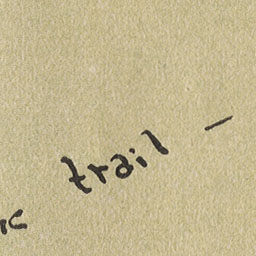 trail –